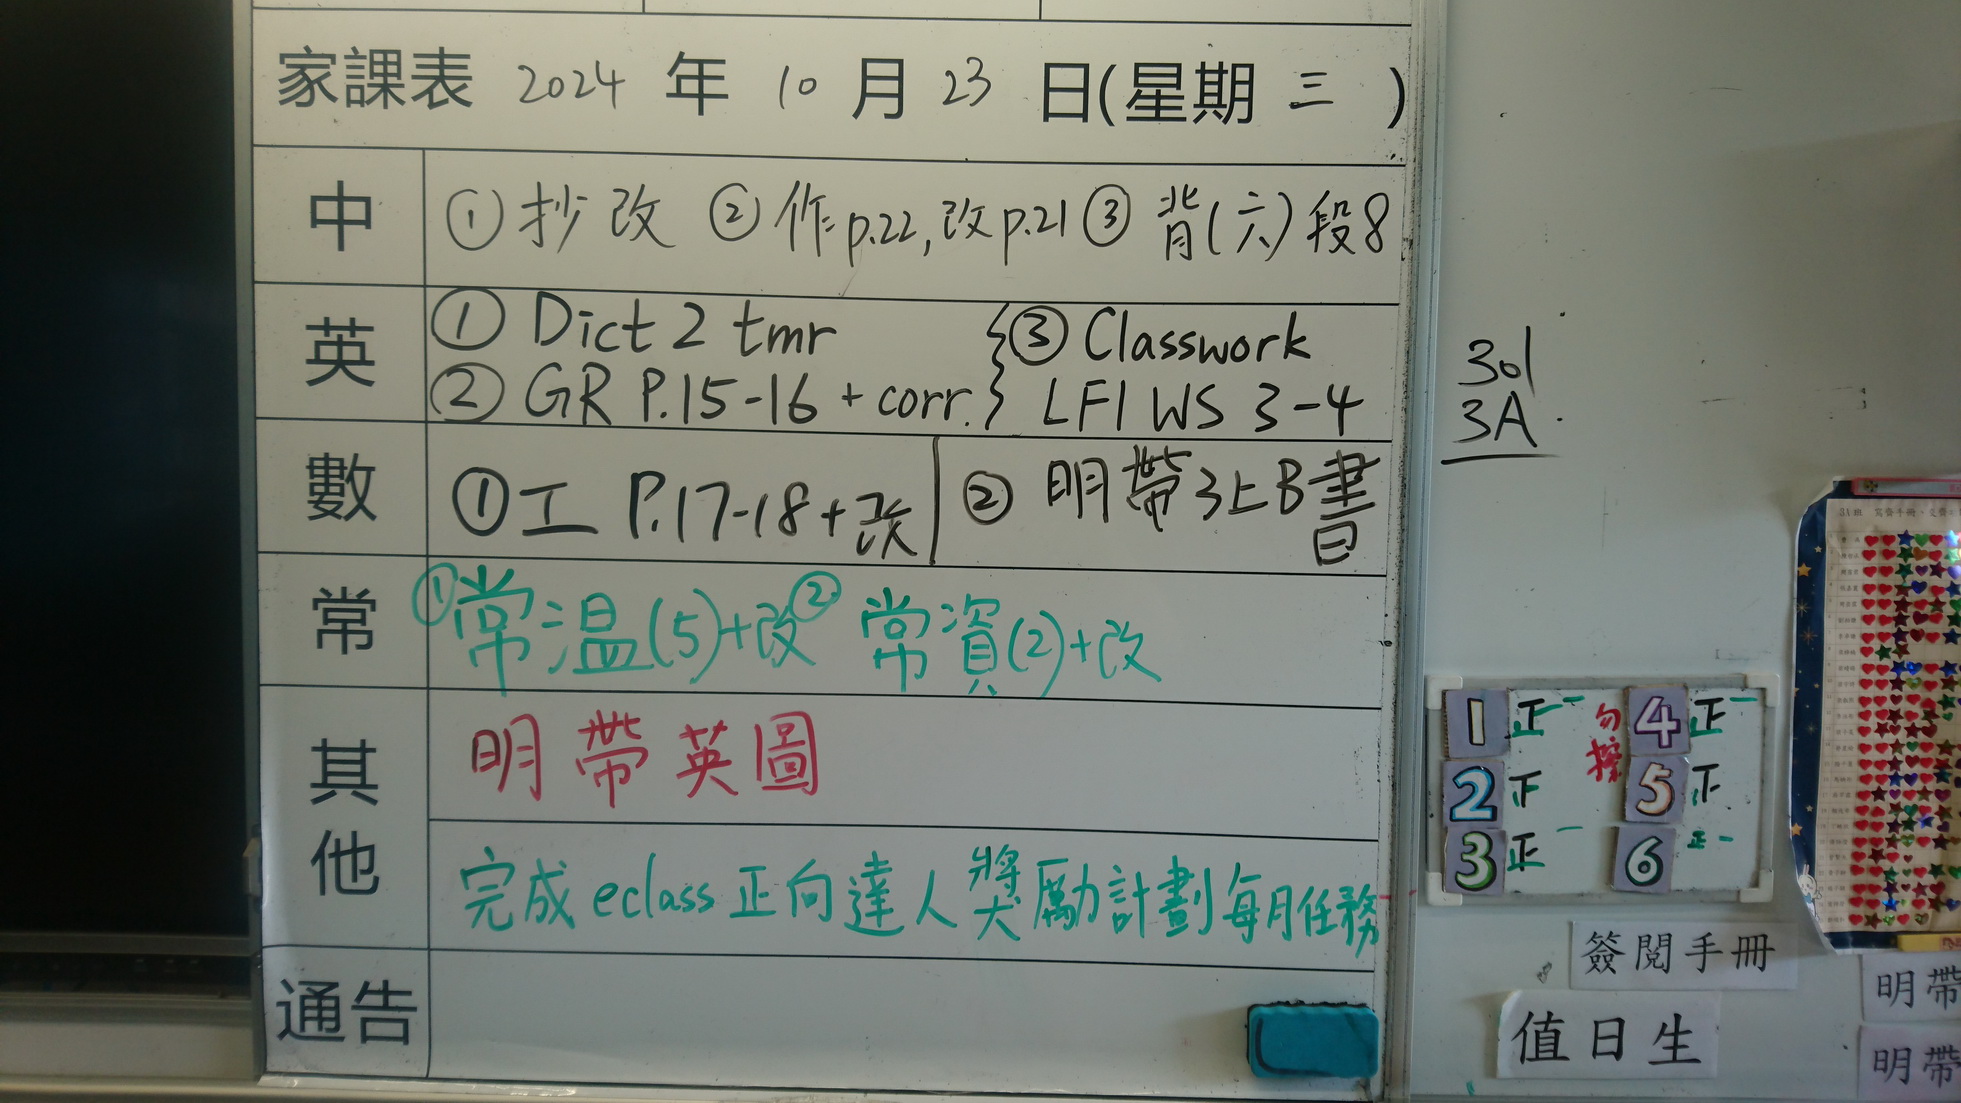 家課表 2024 年 10 月 23 日(星期 三 )
中 ① 抄改 ② 作 p.22, 改 p.21 ③ 背(六)段8
英 ① Dict 2 tmr
② GR P.15-16 + corr.
③ Classwork
LF1 WS 3-4
數 ① 工 P.17-18 + 改 ② 明帶3上B書
常 ① 常溫(5)+改 ② 常資(2)+改
其他 明帶英圖
完成 eclass 正向達人獎勵計劃每月任務
通告
301
3A
1 正一 勿擦 4 正一
2 正 5 正
3 正一 6 正一
簽閱手冊
值日生
明帶
明帶